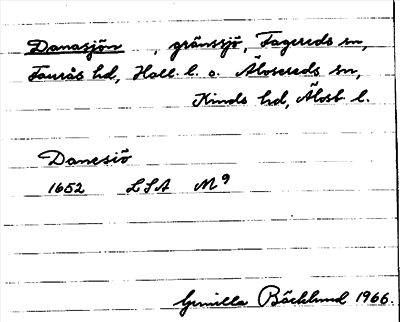 Danasjön, gränssjö, Fagereds sn,
Faurås hd, Hall. l. o. Älvsereds sn,
Kinds hd, Älvsb. l.
Danesiö
1652 LSA M9
Gunilla Bäcklund 1966.